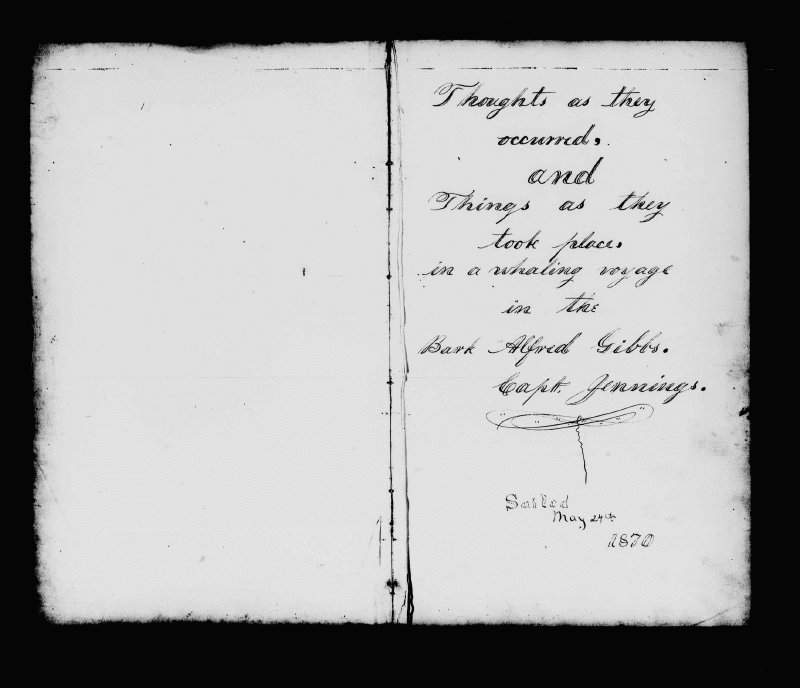 Thoughts as they
occurred,
and
Things as they
took place,
in a whaling voyage
in the
Bark Alfred Gibbs.
Capt. Jennings.
Sailed
May 24th
1870